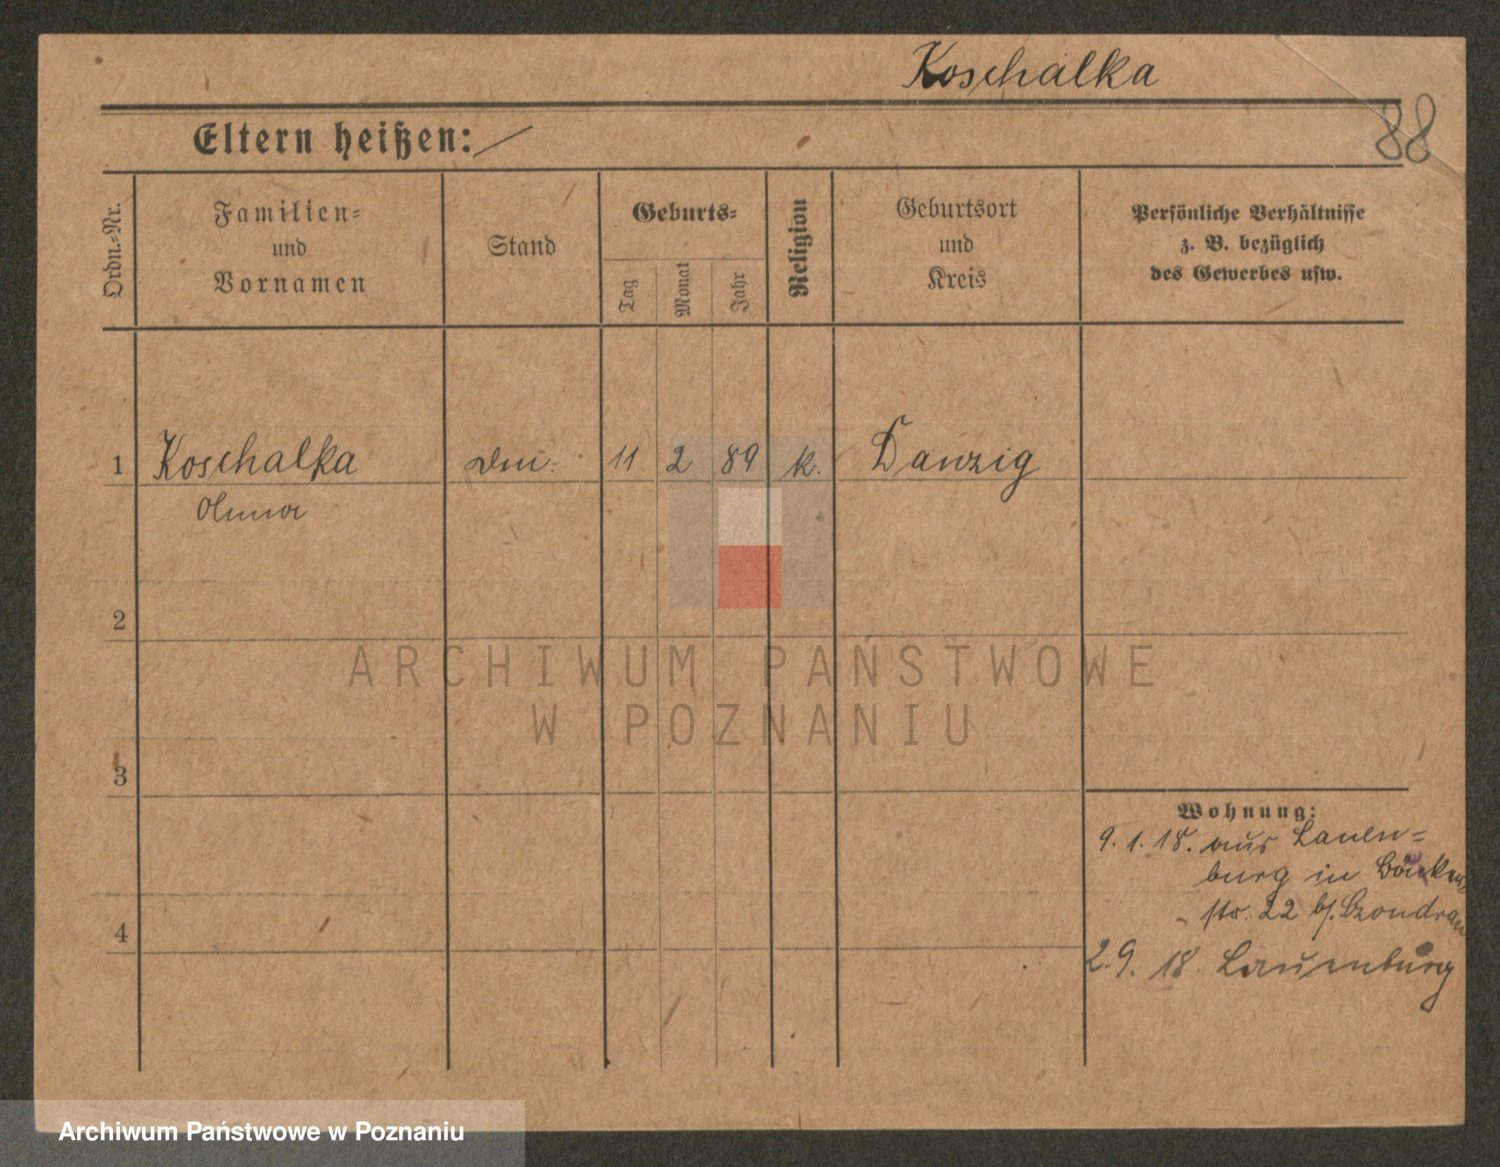 Koschalka
88
Eltern heißen:
Ordn.-Nr.
Familien-
und
Vornamen
Stand
Geburts-
Tag
Monat
Jahr
Religion
Geburtsort
und
Kreis
Persönliche Verhältnisse
z. B. bezüglich
des Gewerbes usw.
1 Koschalka 11 2 89 k. Danzig
Anna
2
3
4
Wohnung:
9. 1. 18. aus Lauen=
burg in
str. 22 b/.
2. 9. 18 Lauenburg
ARCHIWUM PAŃSTWOWE
W POZNANIU
Archiwum Państwowe w Poznaniu